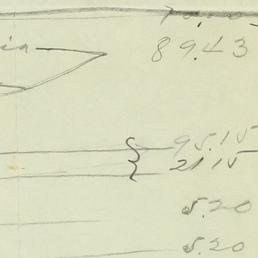 89.43
95.15
21 15
5.20
5.20